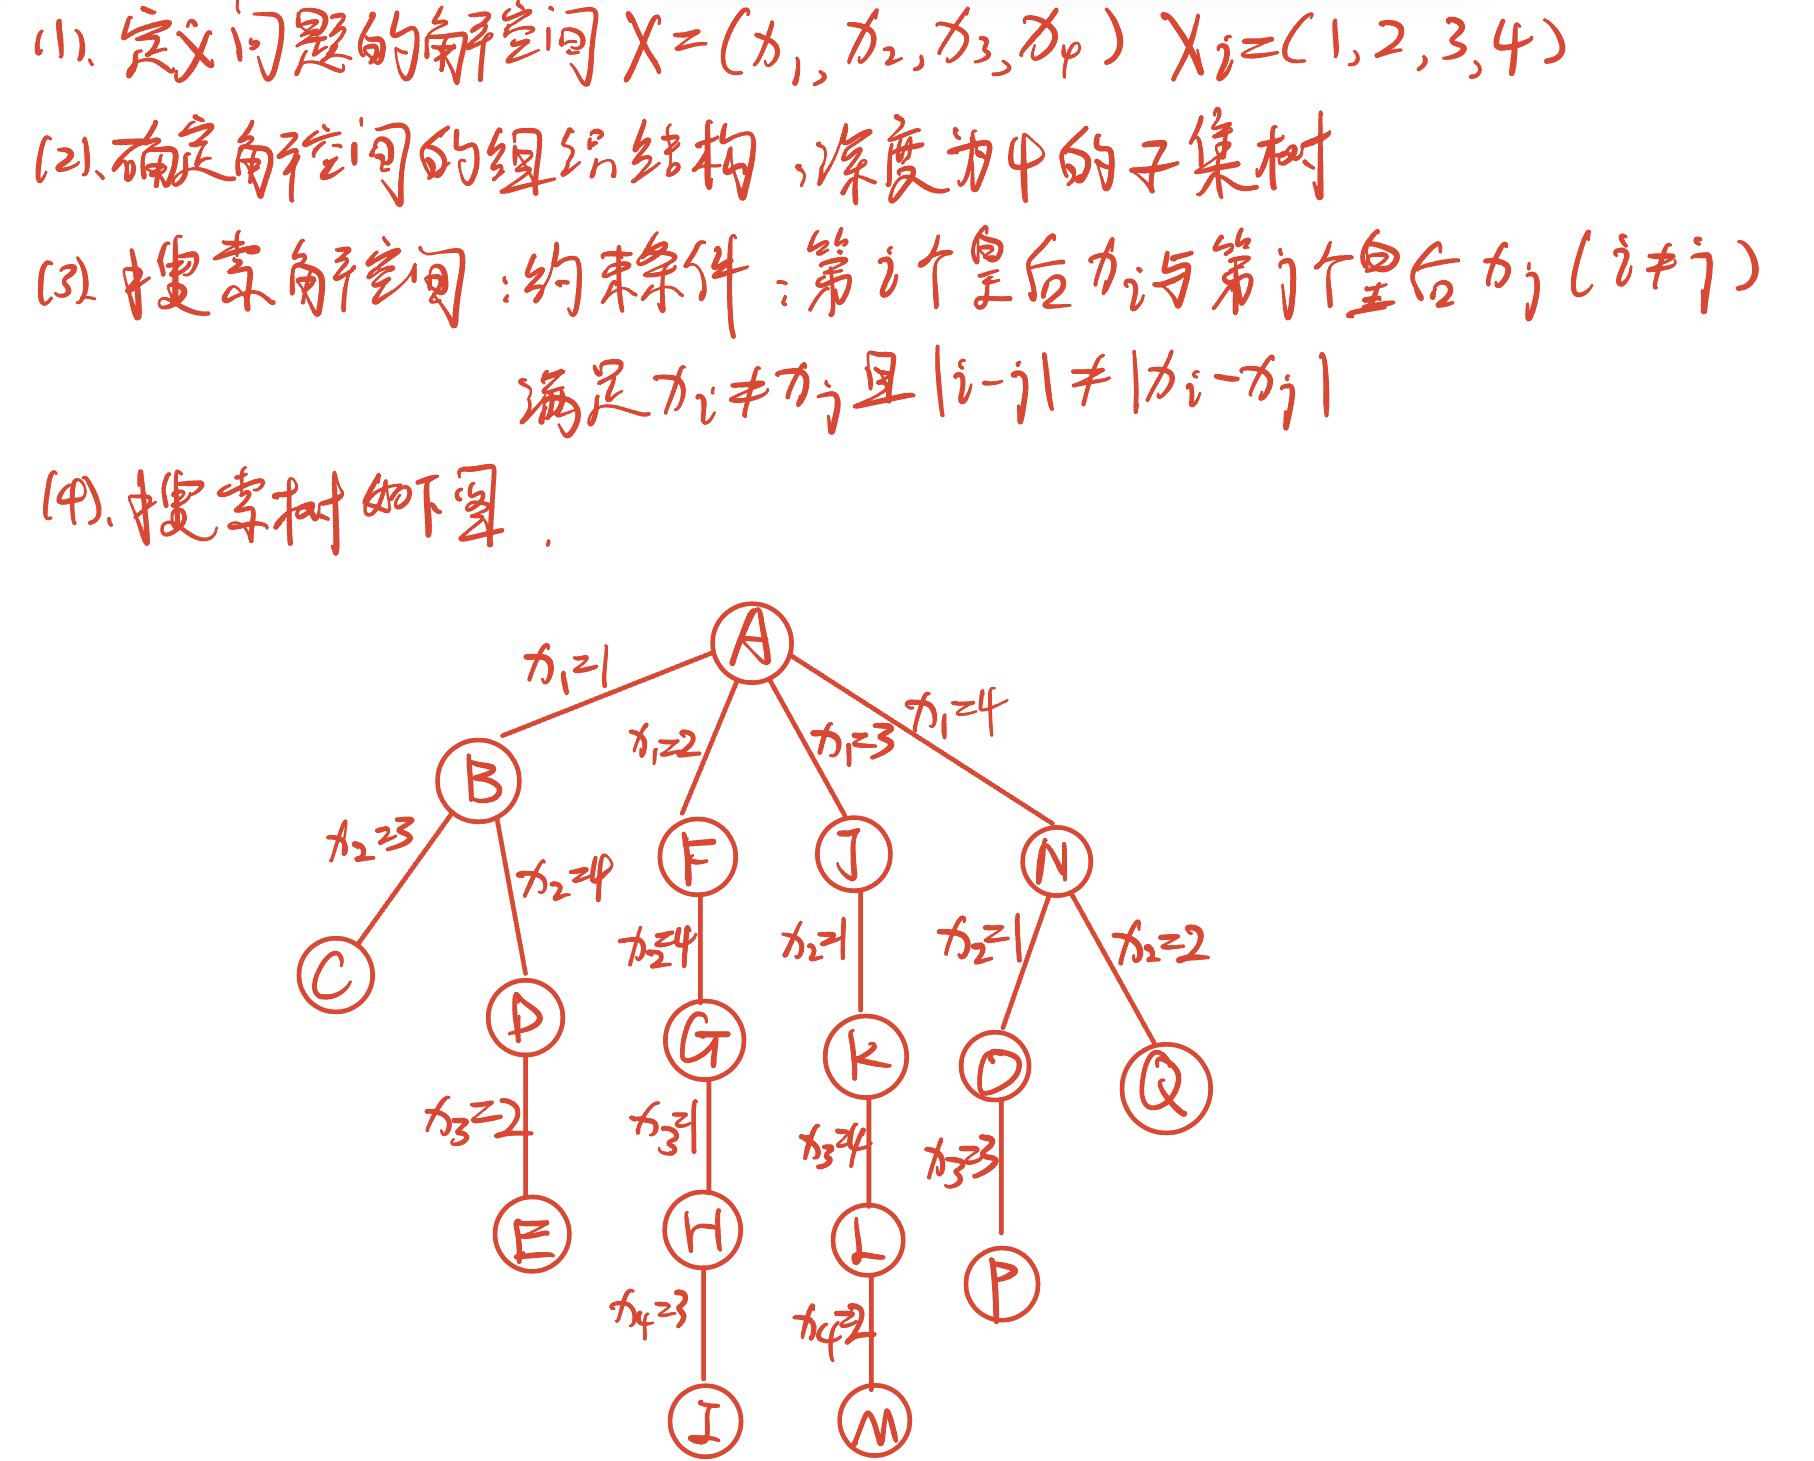 (1)、定义问题的解空间 X=(x₁,x₂,x₃,x₄) Xᵢ=(1,2,3,4)
(2)、确定解空间的组织结构:深度为4的子集树
(3)、搜索解空间:约束条件:第i个皇后xᵢ与第j个皇后xⱼ(i≠j)
满足xᵢ≠xⱼ且|i-j|≠|xᵢ-xⱼ|
(4)、搜索树如下图.
A
x₁=1 x₁=2 x₁=3 x₁=4
B F J N
x₂=3 x₂=4 x₂=4 x₂=1 x₂=1 x₂=2
C D G K O Q
x₃=2 x₃=1 x₃=4 x₃=3
E H L P
x₄=3 x₄=2
I M